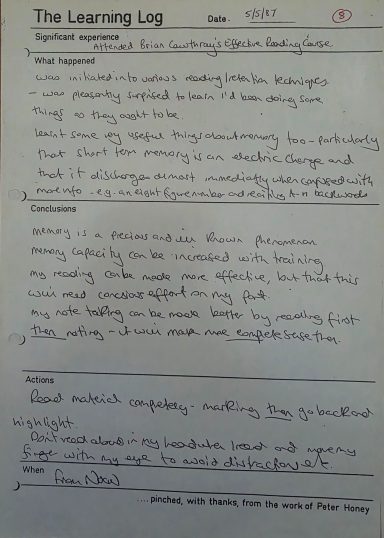 The Learning Log
Date. 5/5/87
8
Significant experience
Attended Brian Cawthray's Effective Reading Course
What happened
was initiated into various reading/retention techniques
- was pleasantly surprised to learn I'd been doing some
things as they ought to be.
learnt some very useful things about memory too - particularly
that short term memory is an electric charge and
that it discharges almost immediately when confused with
more info - e.g. an eight figure number and reciting A-n backwards
Conclusions
memory is a precious and known phenomenon
memory capacity can be increased with training
my reading can be made more effective, but that this
will need conscious effort on my part.
my note taking can be made better by reading first
then noting - it will make more complete sense then.
Actions
Read material completely - marking then go back and
highlight.
Don't read aloud in my head when I read and move my
finger with my eye to avoid distractions etc.
When
From Now
.... pinched, with thanks, from the work of Peter Honey